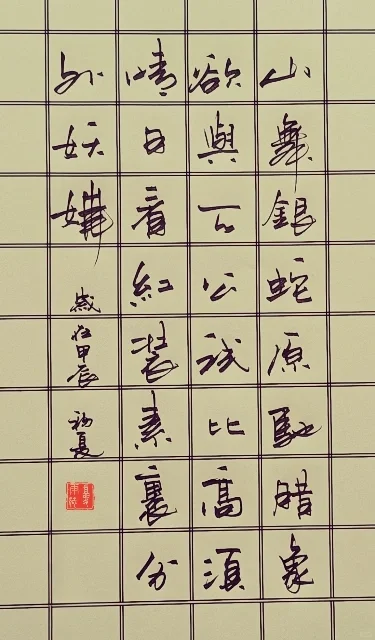 山舞銀蛇原馳腊象
欲與天公試比高須
晴日看紅裝素裏分
外妖嬈
歲在甲辰初夏